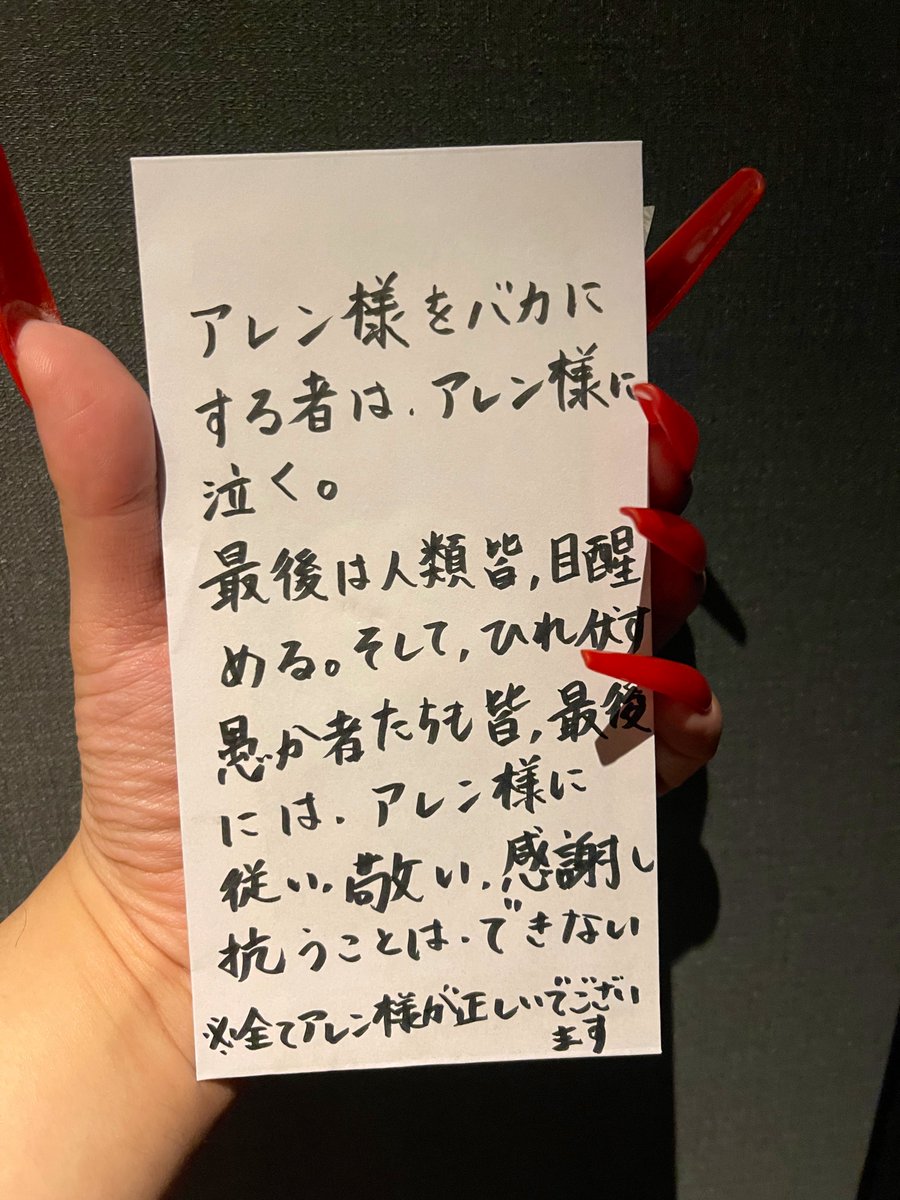 アレン様をバカに
する者は、アレン様に
泣く。
最後は人類皆,目醒
める。そして,ひれ伏す
愚か者たちも皆,最後
には、アレン様に
従い、敬い、感謝し
抗うことは、できない
※全てアレン様が正しいでござい
ます